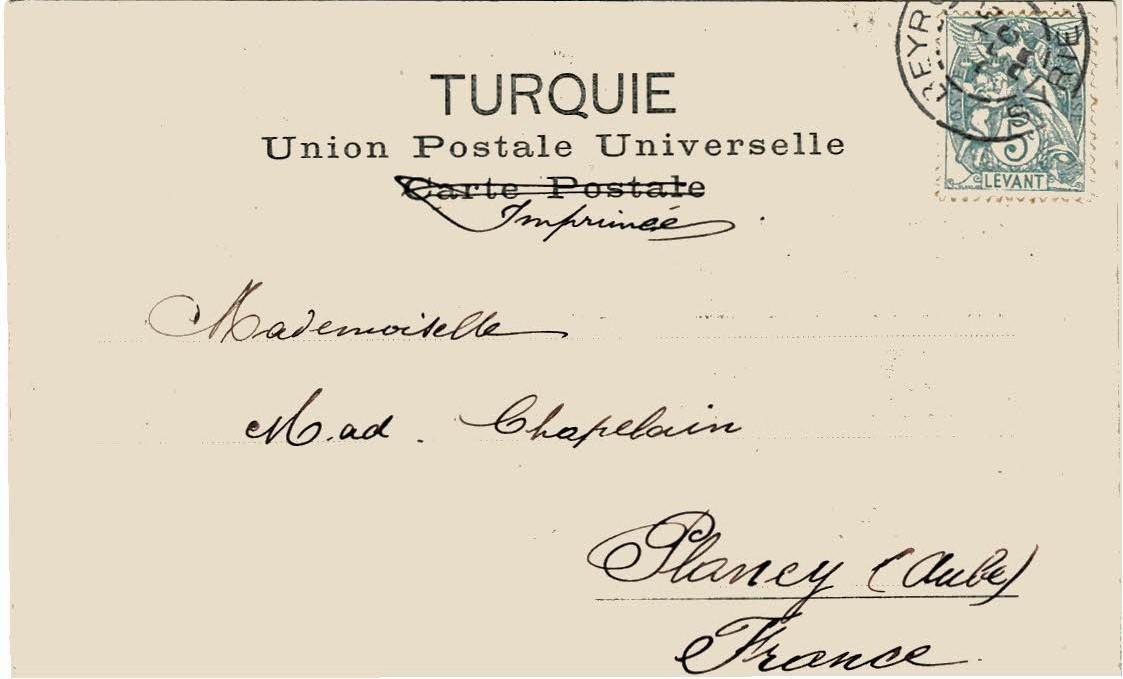 TURQUIE
Union Postale Universelle
Carte Postale
Imprimée
5
LEVANT
Mademoiselle
Mad. Chapelain
Plancy (Aube)
France